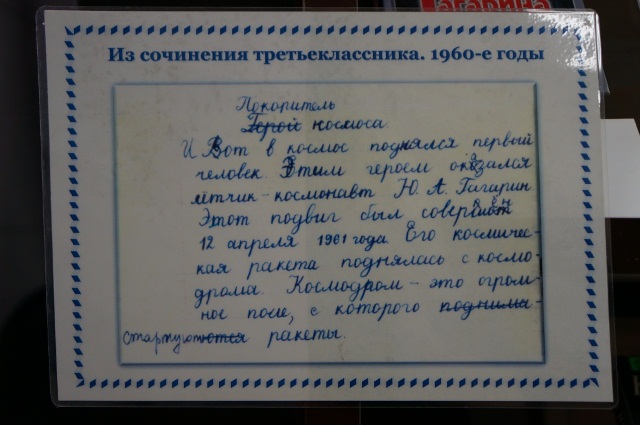 Гагарина
Из сочинения третьеклассника. 1960-е годы
Покоритель
Герой космоса.
И Вот в космос поднялся первый
человек. Этим героем оказался
лётчик-космонавт Ю. А. Гагарин.
Этот подвиг был совершен
12 апреля 1961 года. Его космичес-
кая ракета поднялась с космо-
дрома. Космодром - это огром-
ное поле, с которого поднима-
стартуют ются ракеты.